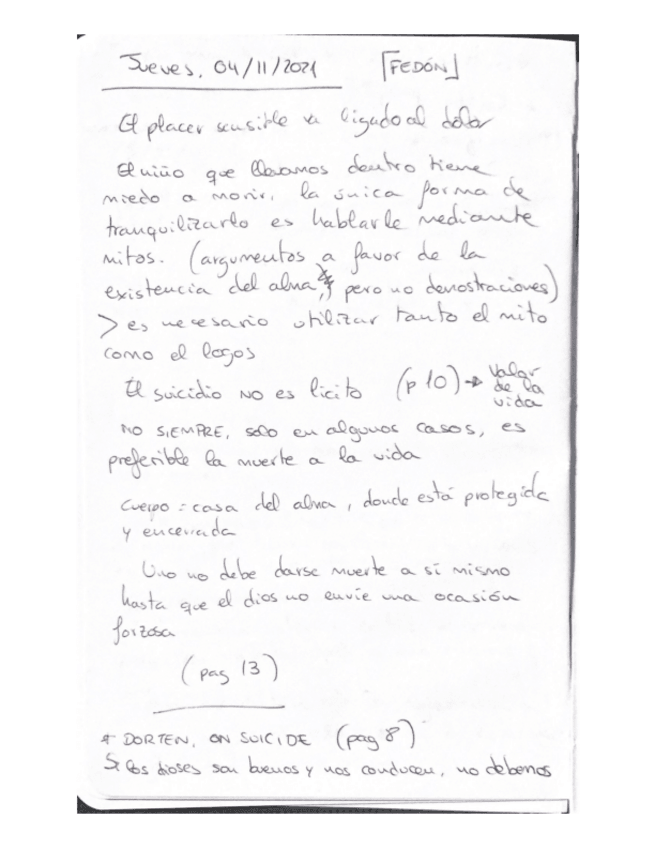 Jueves, 04/11/2021 [FEDÓN]
El placer sensible va ligado al dolor
El niño que llevamos dentro tiene
miedo a morir. la única forma de
tranquilizarlo es hablarle mediante
mitos. (argumentos a favor de la
existencia del alma, pero no demostraciones)
> es necesario utilizar tanto el mito
como el logos
El suicidio NO es lícito (p 10) → Valor
de la
vida
NO SIEMPRE, solo en algunos casos, es
preferible la muerte a la vida
Cuerpo = casa del alma, donde está protegida
y encerrada
Uno no debe darse muerte a sí mismo
hasta que el dios no envíe una ocasión
forzosa
(pag 13)
* DORTEN, ON SUICIDE (pag 8)
Si los dioses son buenos y nos conducen, no debemos